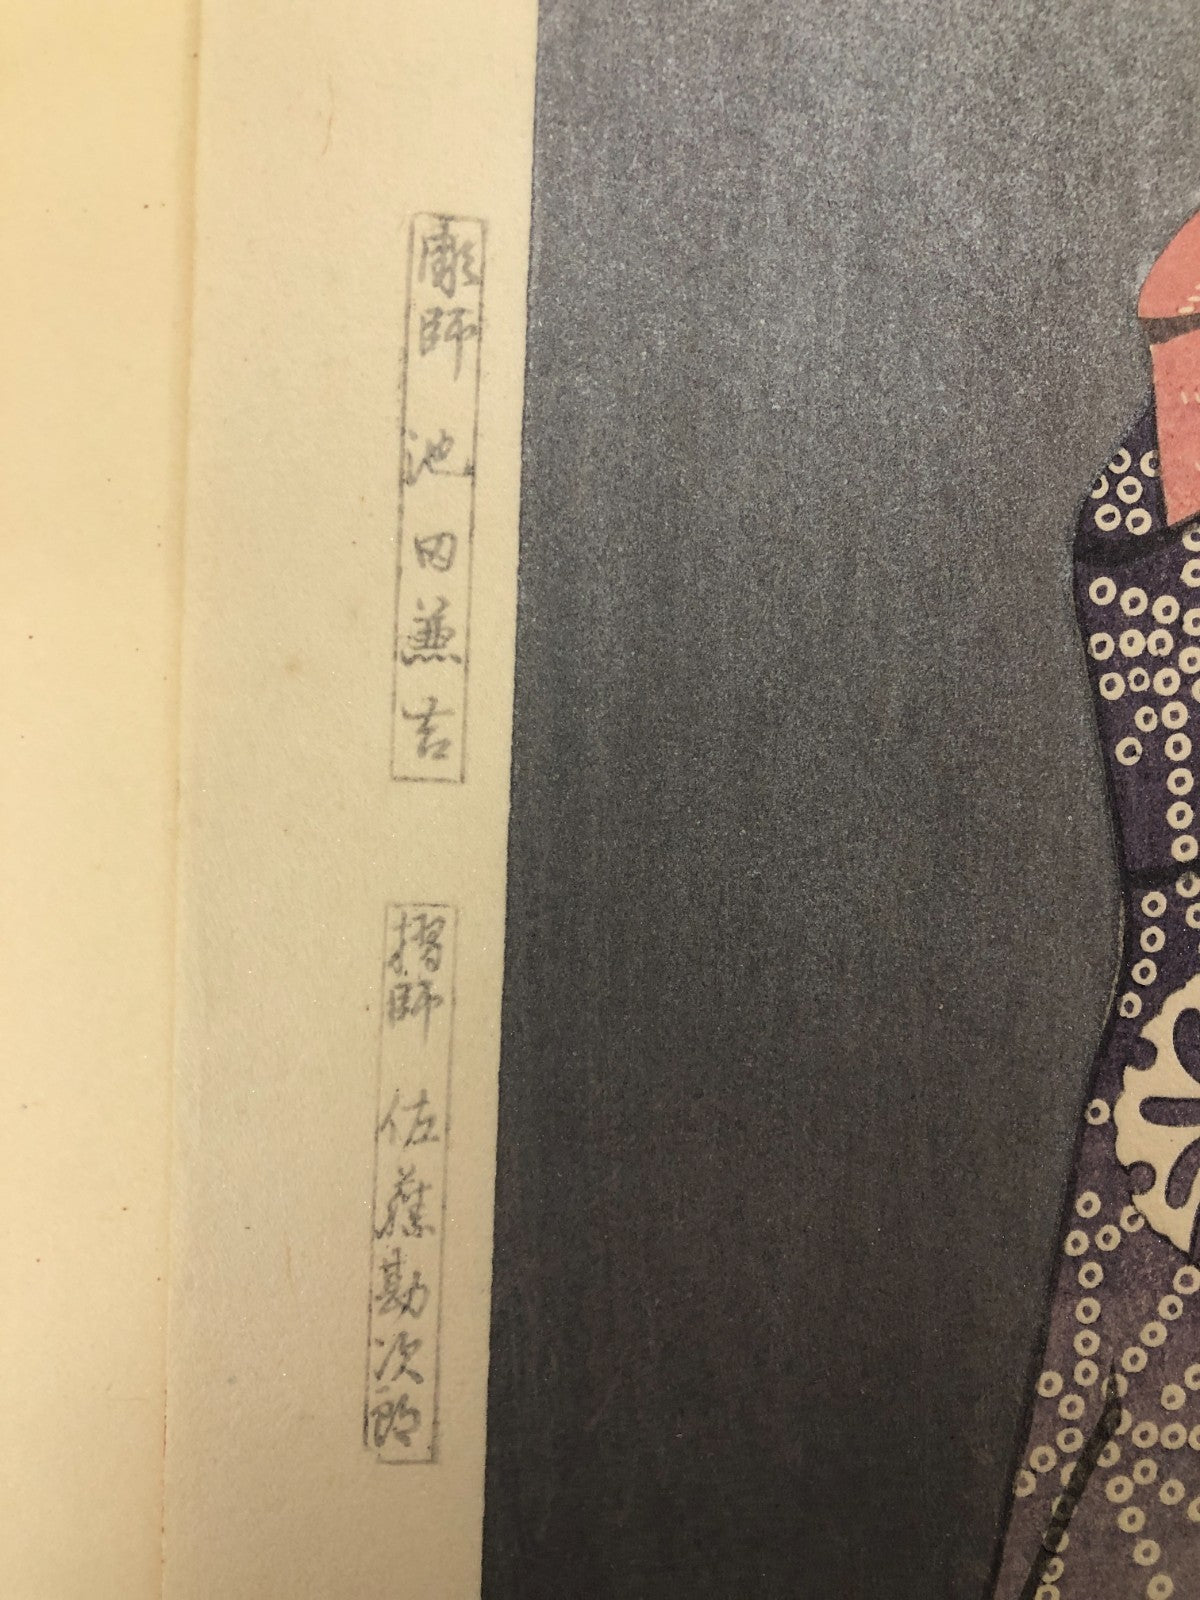 彫師 池田兼吉
摺師 佐藤勘次郎